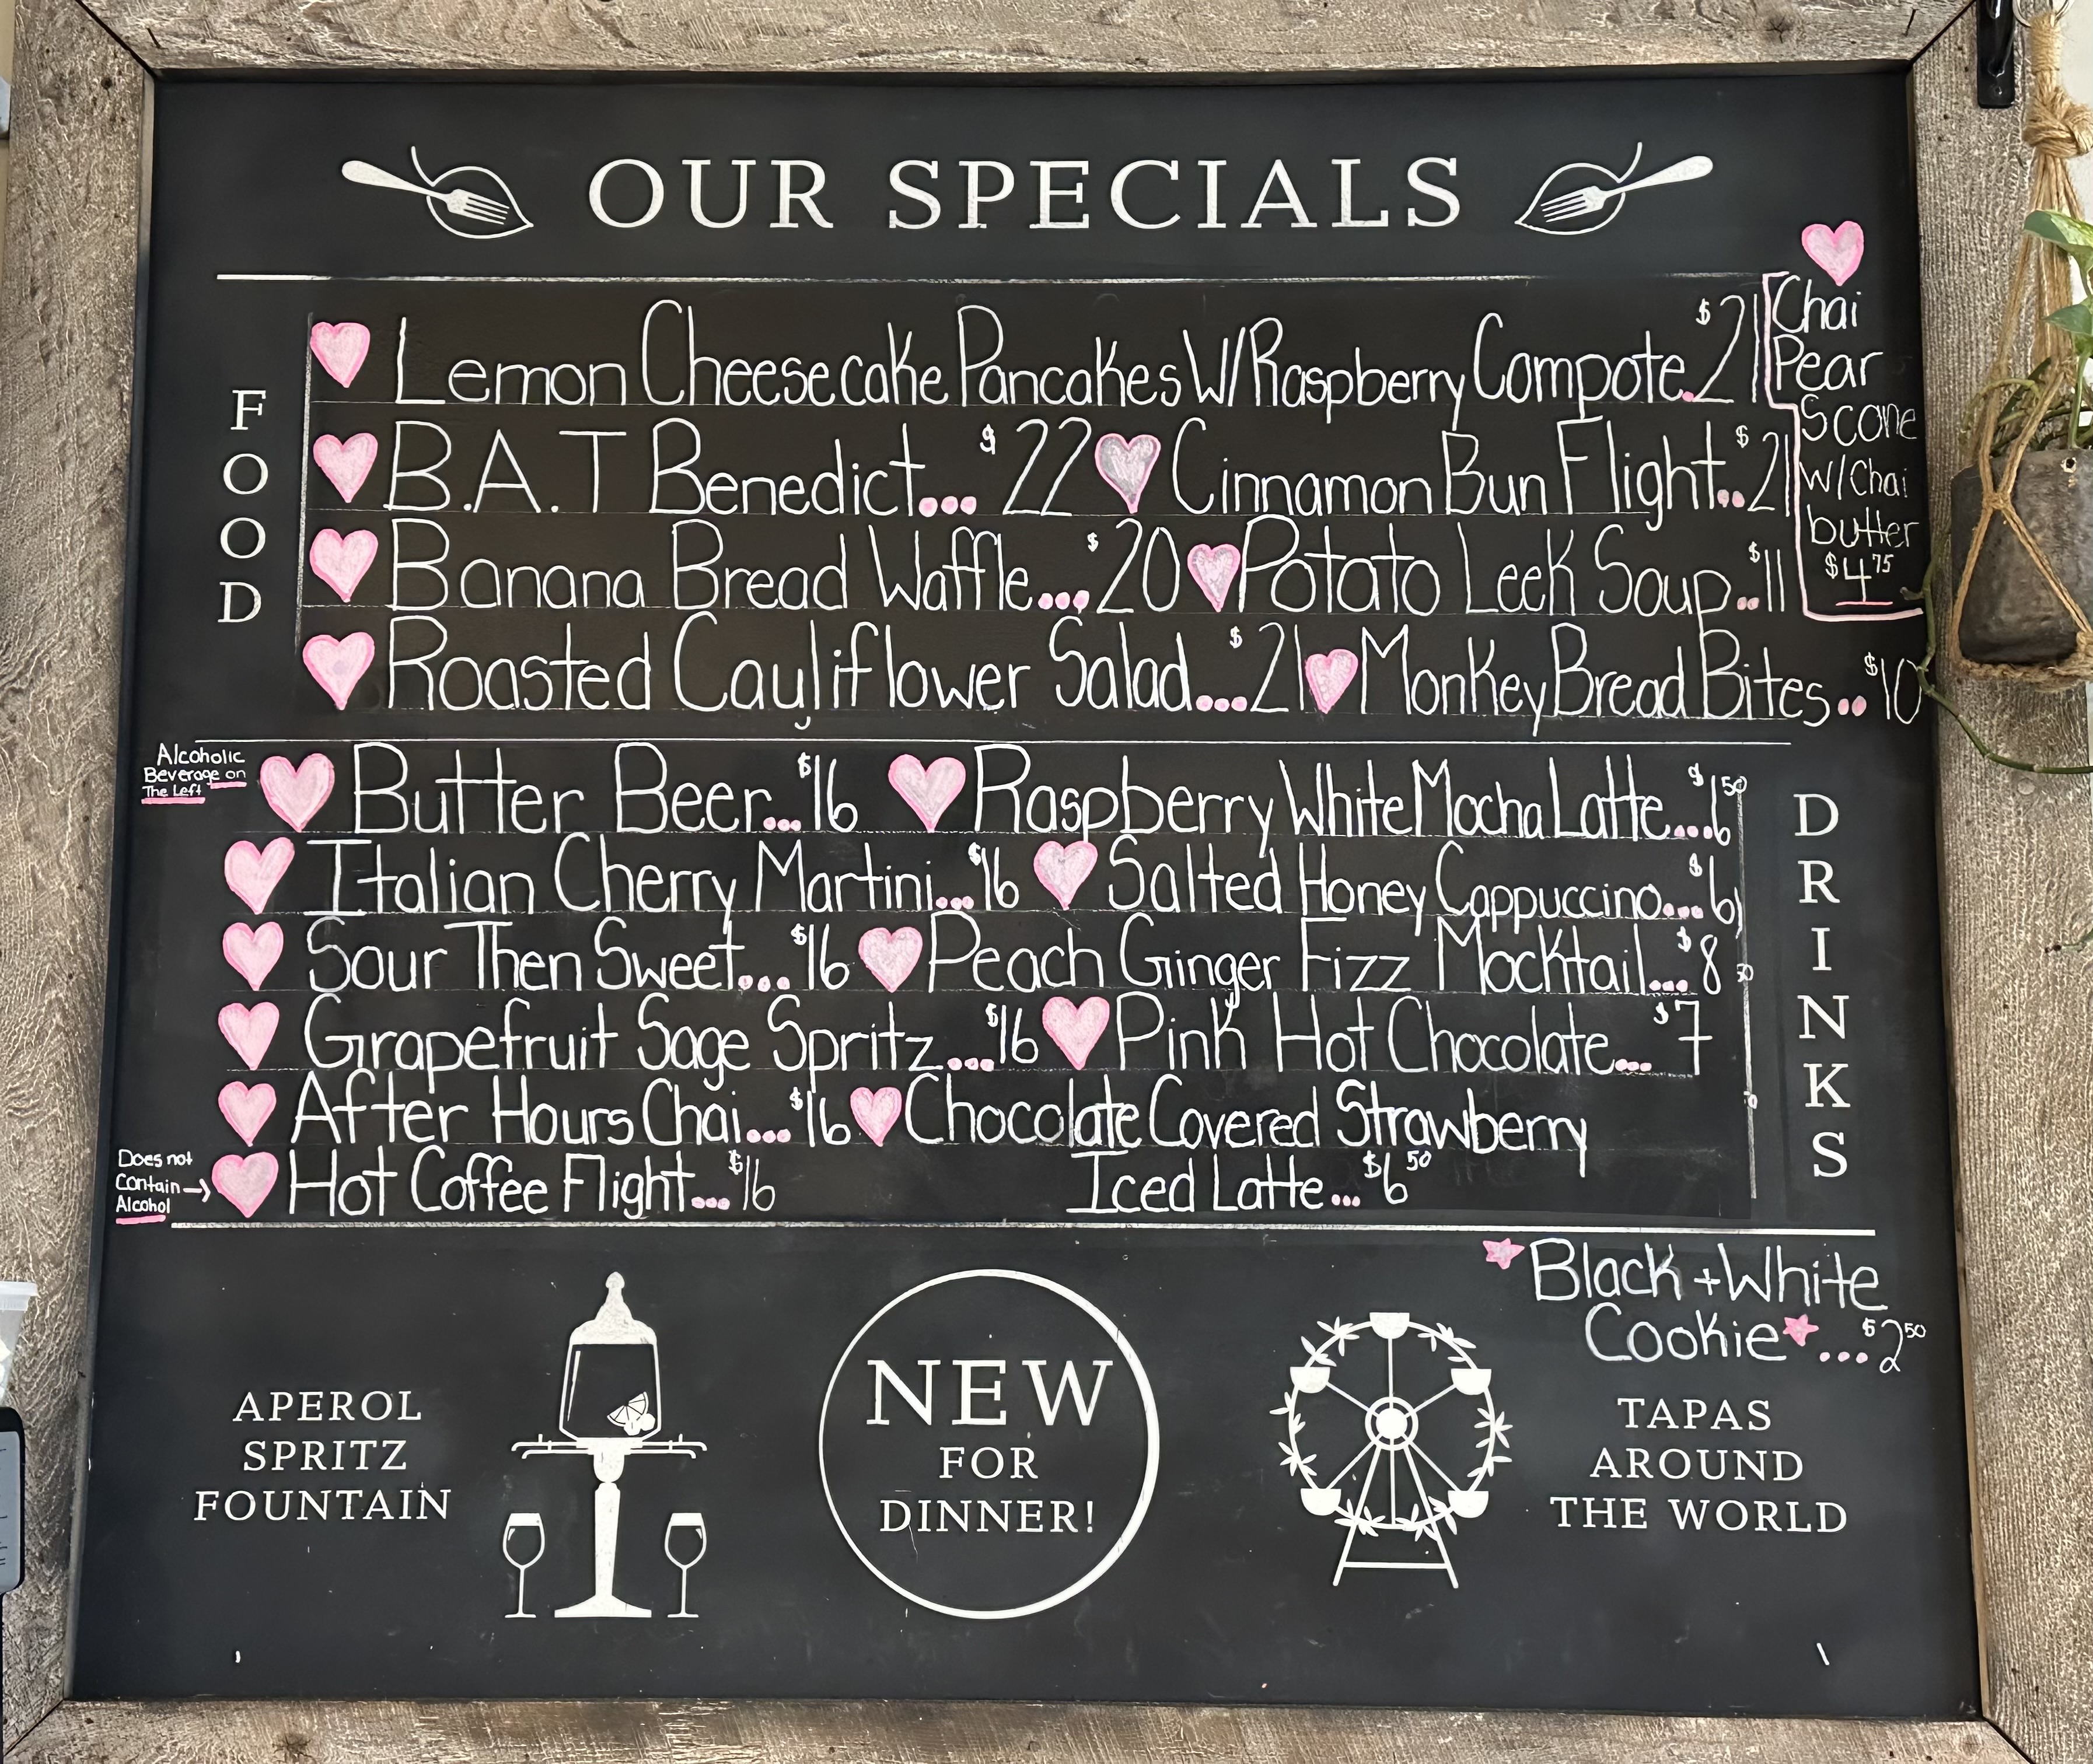 OUR SPECIALS
FOOD
Lemon Cheesecake Pancakes W/Raspberry Compote. $21
B.A.T Benedict... $22 Cinnamon Bun Flight.. $21
Banana Bread Waffle... $20 Potato Leek Soup.. $11
Roasted Cauliflower Salad... $21 Monkey Bread Bites.. $10
Chai
Pear
Scone
W/Chai
butter
$4 75
Alcoholic
Beverage on
The Left
Butter Beer... $16 Raspberry White Mocha Latte... $6 50
Italian Cherry Martini... $16 Salted Honey Cappuccino... $6
Sour Then Sweet... $16 Peach Ginger Fizz Mocktail... $8
Grapefruit Sage Spritz... $16 Pink Hot Chocolate... $7
After Hours Chai... $16 Chocolate Covered Strawberry
Hot Coffee Flight... $16 Iced Latte... $6 50
Does not
Contain
Alcohol
DRINKS
Black + White
Cookie ... $2 50
APEROL
SPRITZ
FOUNTAIN
NEW
FOR
DINNER!
TAPAS
AROUND
THE WORLD